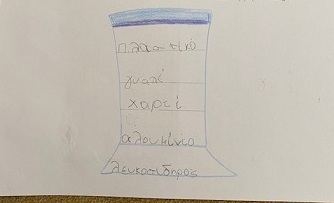 πλαστικό
γυαλί
χαρτί
αλουμίνιο
λευκοσίδηρος